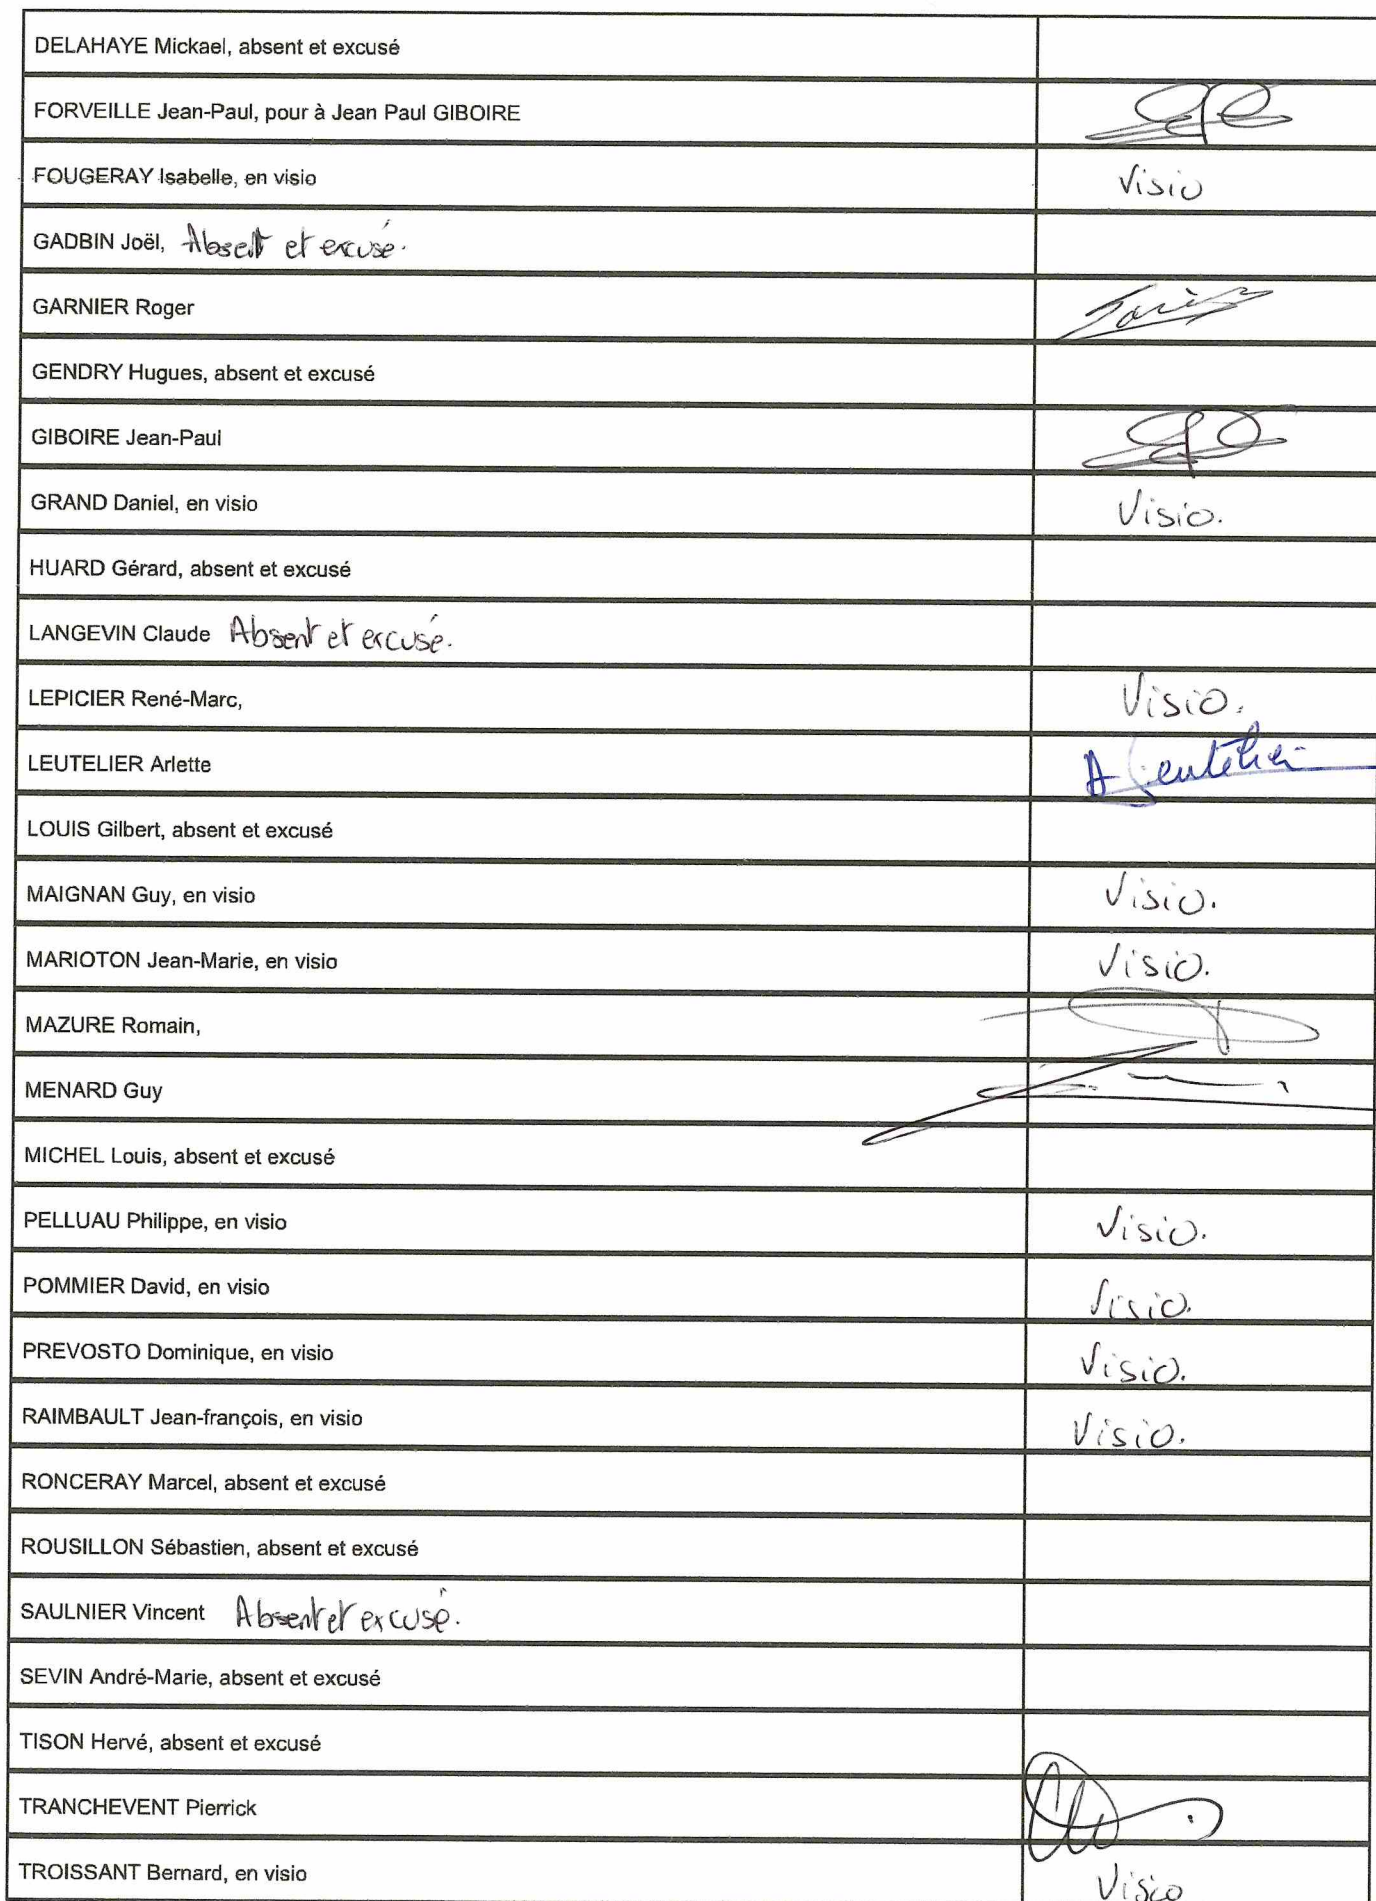 DELAHAYE Mickael, absent et excusé
FORVEILLE Jean-Paul, pour à Jean Paul GIBOIRE
FOUGERAY Isabelle, en visio Visio
GADBIN Joël, Absent et excusé.
GARNIER Roger
GENDRY Hugues, absent et excusé
GIBOIRE Jean-Paul
GRAND Daniel, en visio Visio.
HUARD Gérard, absent et excusé
LANGEVIN Claude Absent et excusé.
LEPICIER René-Marc, Visio.
LEUTELIER Arlette A Leutelier
LOUIS Gilbert, absent et excusé
MAIGNAN Guy, en visio Visio.
MARIOTON Jean-Marie, en visio Visio.
MAZURE Romain,
MENARD Guy
MICHEL Louis, absent et excusé
PELLUAU Philippe, en visio Visio.
POMMIER David, en visio Visio.
PREVOSTO Dominique, en visio Visio.
RAIMBAULT Jean-françois, en visio Visio.
RONCERAY Marcel, absent et excusé
ROUSILLON Sébastien, absent et excusé
SAULNIER Vincent Absent et excusé.
SEVIN André-Marie, absent et excusé
TISON Hervé, absent et excusé
TRANCHEVENT Pierrick
TROISSANT Bernard, en visio Visio